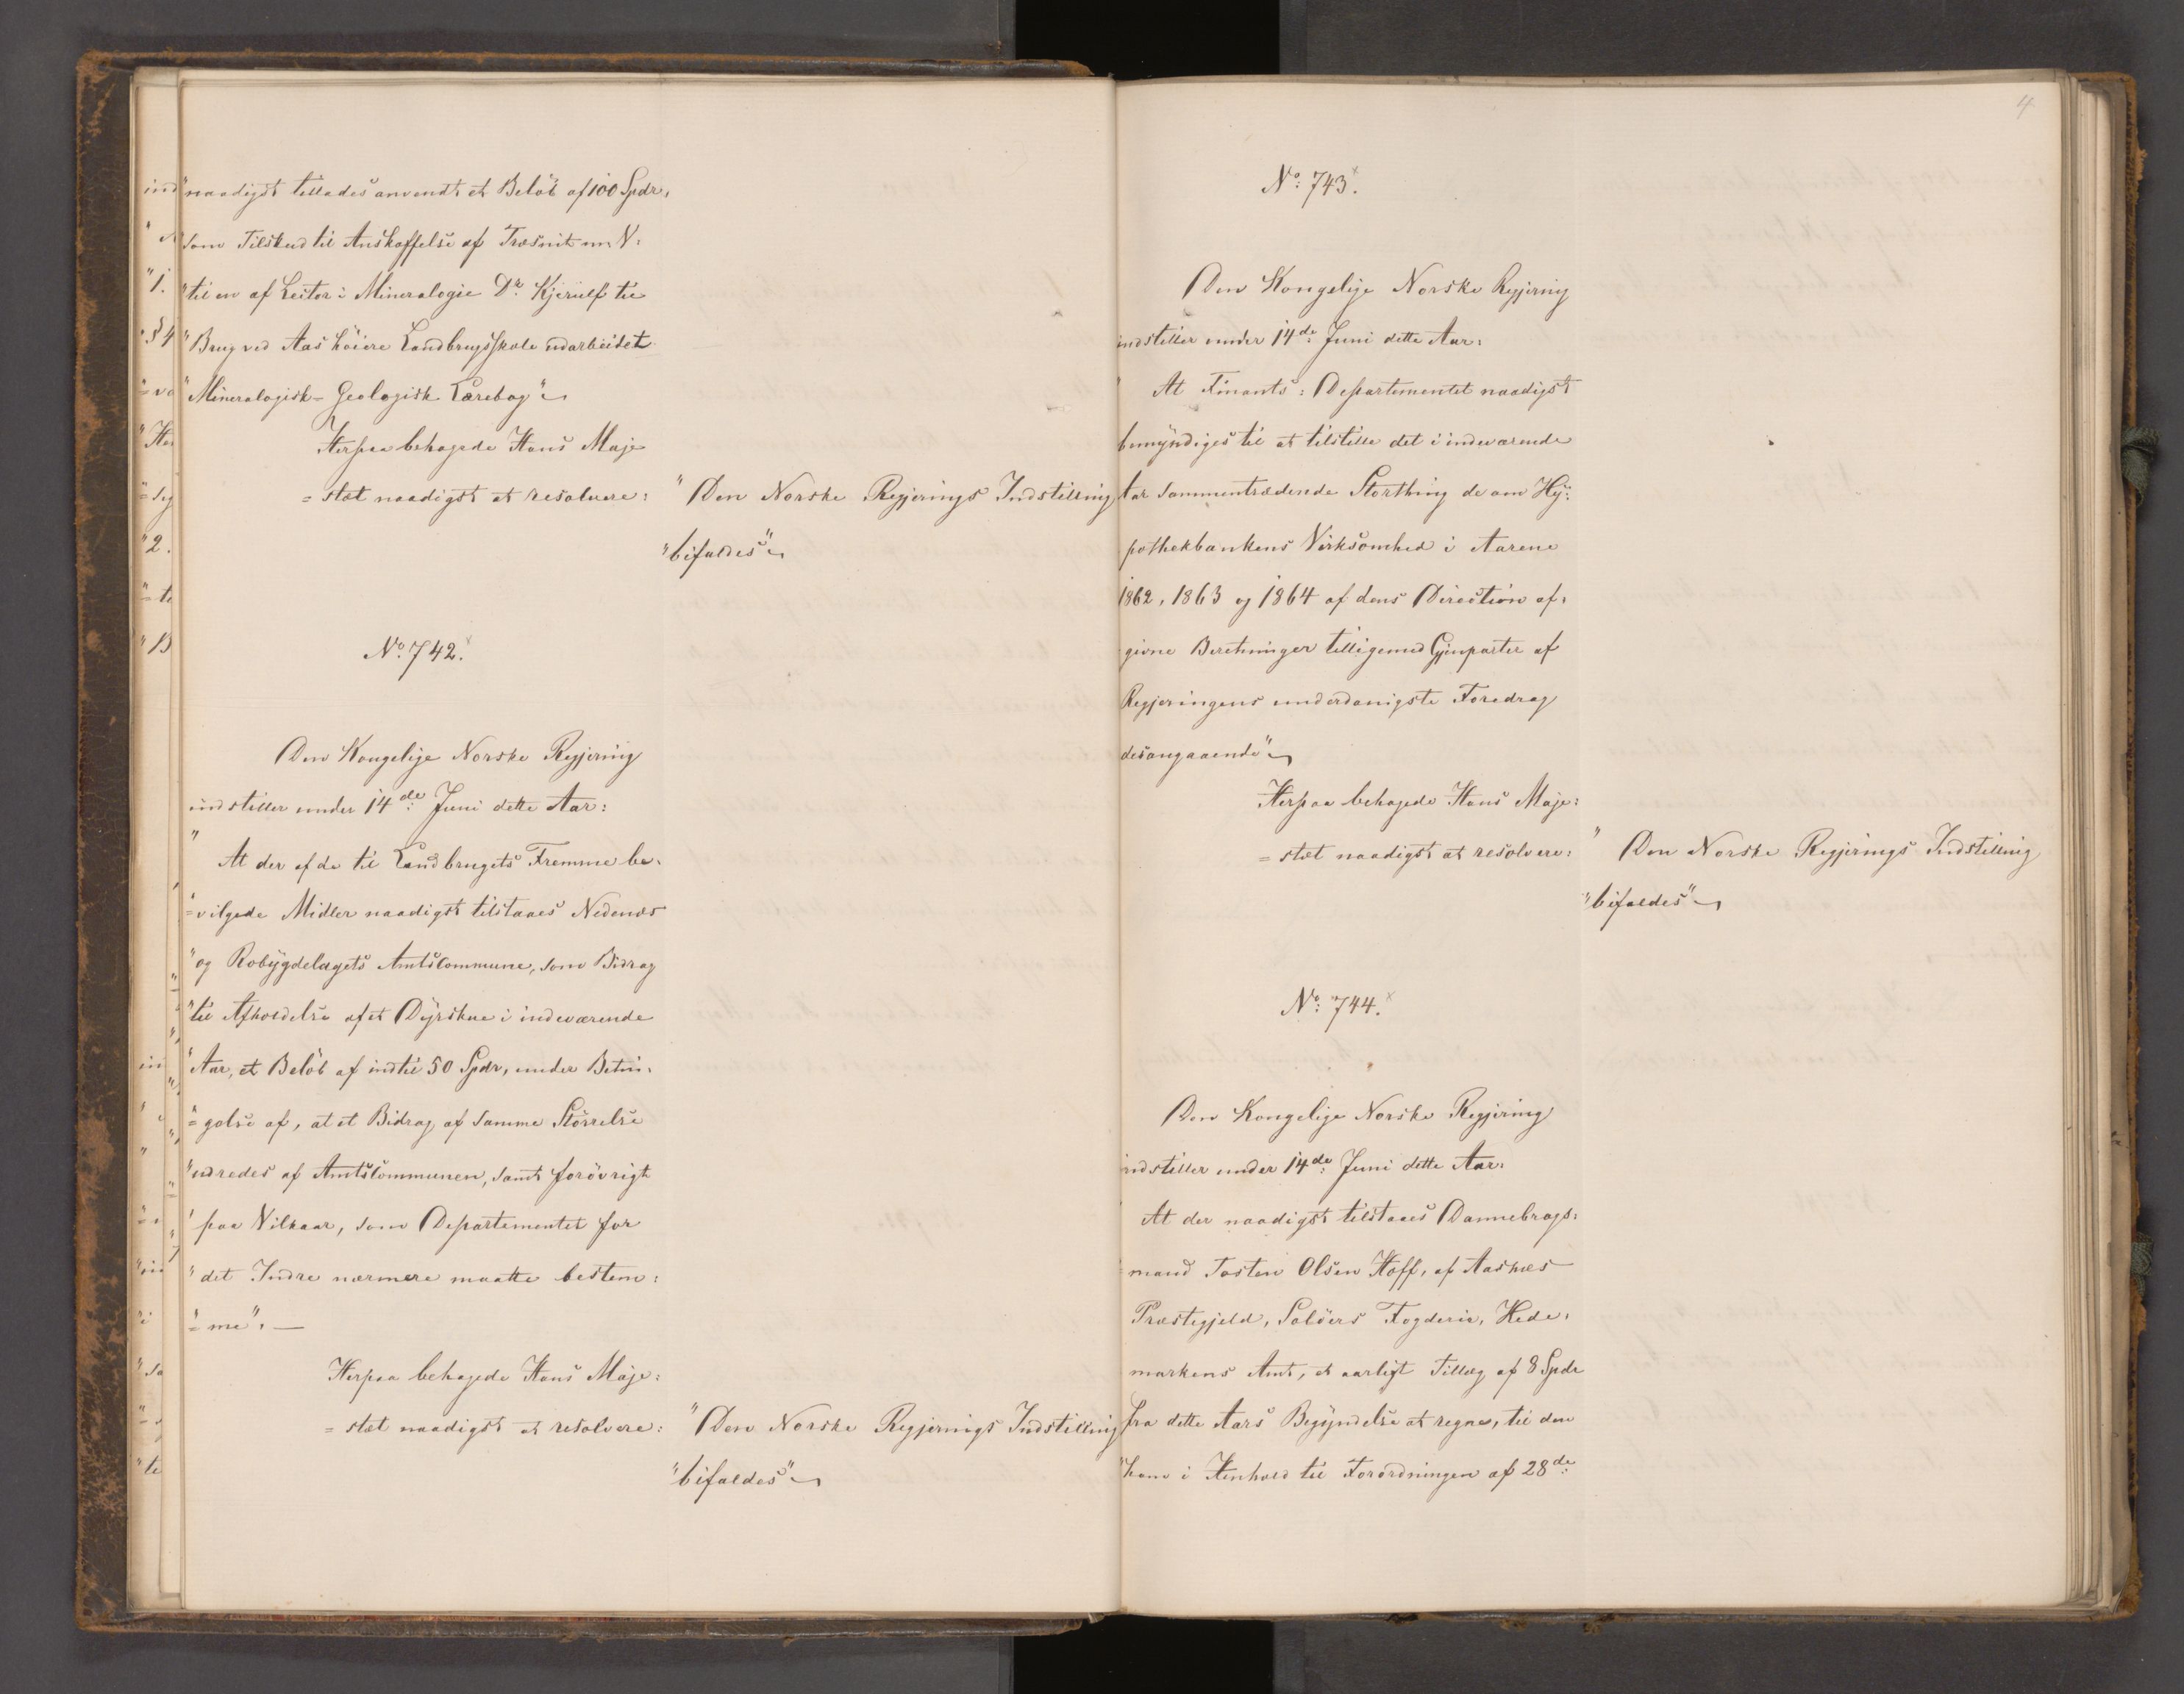 "naadigst tillades anvendt et Beløb af 100 Spdr,
"som Tilskud til Anskaffelse af Træsnit m. V:
"til en af Lector i Mineralogie Dr. Kjerulf til
"Brug ved Aas høiere Landbrugsskole udarbeidet
"Mineralogisk-Geologisk Lærebog"
Herpaa behagede Hans Maje
=stæt naadigst at resolvere:
"Den Norske Regjerings Indstilling
"bifaldes"
No. 742.
Den Kongelige Norske Regjering
indstiller under 14de Juni dette Aar:
"At der af de til Landbrugets Fremme be-
"=vilgede Midler naadigst tilstaaes Nedenæs
"og Robygdelagets Amtscommune, som Bidrag
"til Afholdelse af et Dyrskue i indeværende
"Aar, et Beløb af indtil 50 Spdr, under Betin-
"=gelse af, at et Bidrag af samme Størrelse
"udredes af Amtscommunen, samt forøvrigt
"paa Vilkaar, som Departementet for
"det Indre nærmere maatte bestem:
"=me". —
Herpaa behagede Hans Maje:
=stæt naadigst at resolvere:
"Den Norske Regjerings Indstilling
"bifaldes"
4
No: 743.
Den Kongelige Norske Regjering
indstiller under 14de Juni dette Aar:
At Finants: Departementet naadigst
bemyndiges til at tilstille det i indeværende
Aar sammentrædende Storthing de om Hy:
pothekbankens Virksomhed i Aarene
1862, 1863 og 1864 af dens Direction af-
givne Beretninger tilligemed Gjenparter af
Regjeringens underdanigste Foredrag
desangaaende"
Herpaa behagede Hans Maje:
=stæt naadigst at resolvere:
"Den Norske Regjerings Indstilling
"bifaldes"
No: 744.
Den Kongelige Norske Regjering
indstiller under 14de Juni dette Aar.
At der naadigst tilstaaes Dannebrogs:
mand Tosten Olsen Hoff, af Aasnæs
Præstegjeld, Soløers Fogderie, Hede-
markens Amt, et aarligt Tillæg af 8 Spdr
fra dette Aars Begyndelse at regne, til den
ham i Henhold til Forordningen af 28de